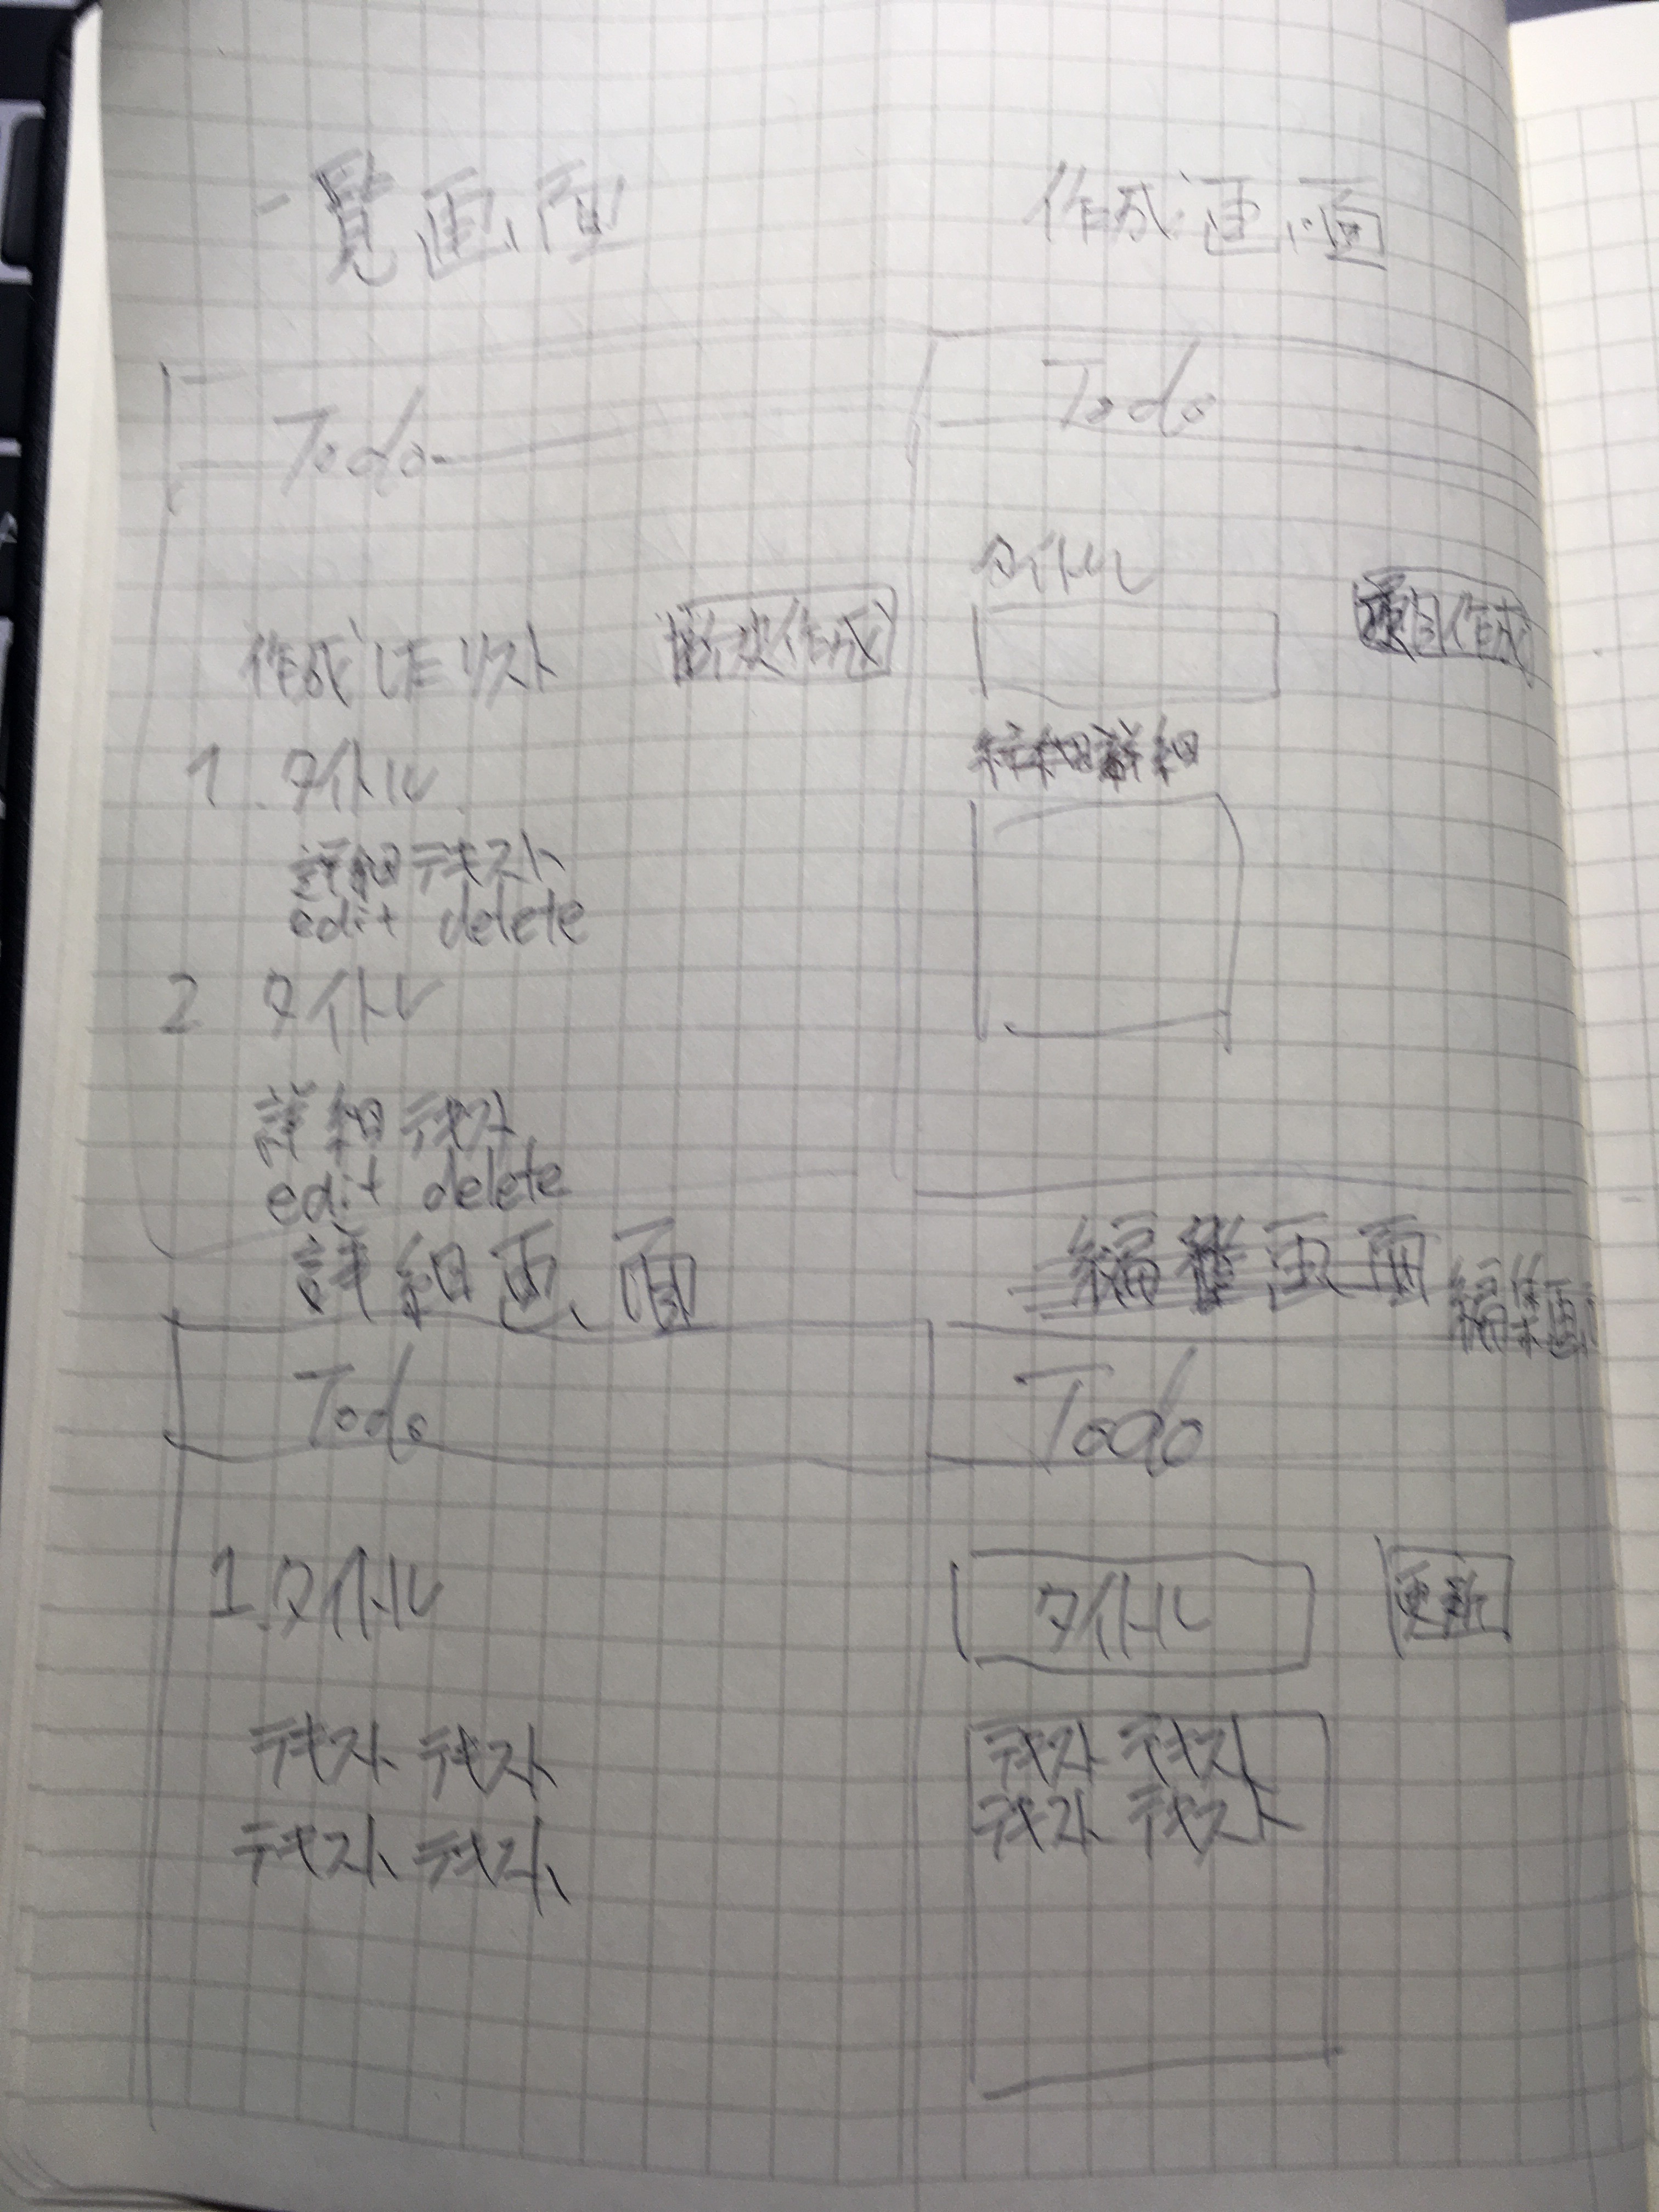 一覧画面
Todo
作成したリスト
新規作成
1. タイトル
詳細テキスト
edit delete
2 タイトル
詳細テキスト
edit delete
作成画面
Todo
タイトル
項目作成
詳細
詳細画面
Todo
1. タイトル
テキスト テキスト
テキスト テキスト
編集画面
編集画
Todo
タイトル
更新
テキスト テキスト
テキスト テキスト